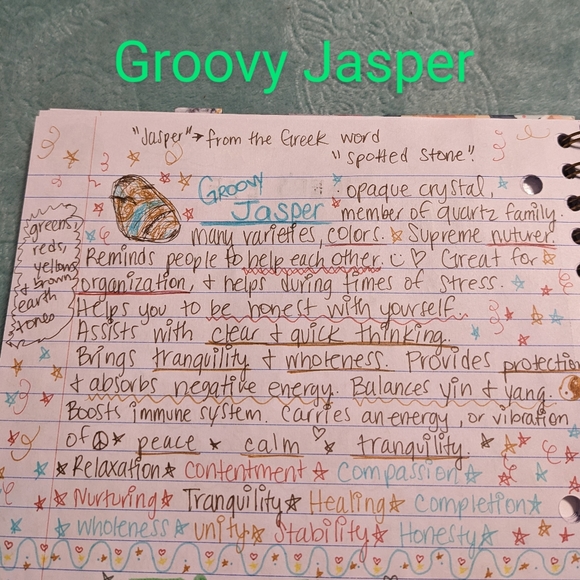 Groovy Jasper
"Jasper"→ from the Greek word
"Spotted Stone".
Groovy
Jasper
opaque crystal,
member of quartz family.
many varieties, colors. Supreme nuturer.
greens,
reds,
yellows
& brown
earth
tones
Reminds people to help each other. Great for
organization, & helps during times of stress.
Helps you to be honest with yourself.
Assists with clear & quick thinking.
Brings tranquility & wholeness. Provides protection
& absorbs negative energy. Balances yin & yang.
Boosts immune system. Carries an energy, or vibration
of peace calm tranquility
Relaxation contentment Compassion
Nurturing Tranquility Healing Completion
Wholeness unity Stability Honesty